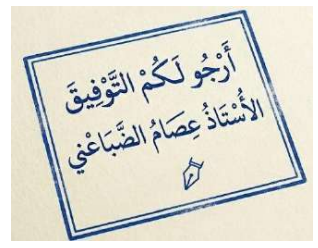 أَرْجُو لَكُمْ التَّوْفِيقَ
الأُسْتَاذُ عِصَامُ الضَّبَاعْني